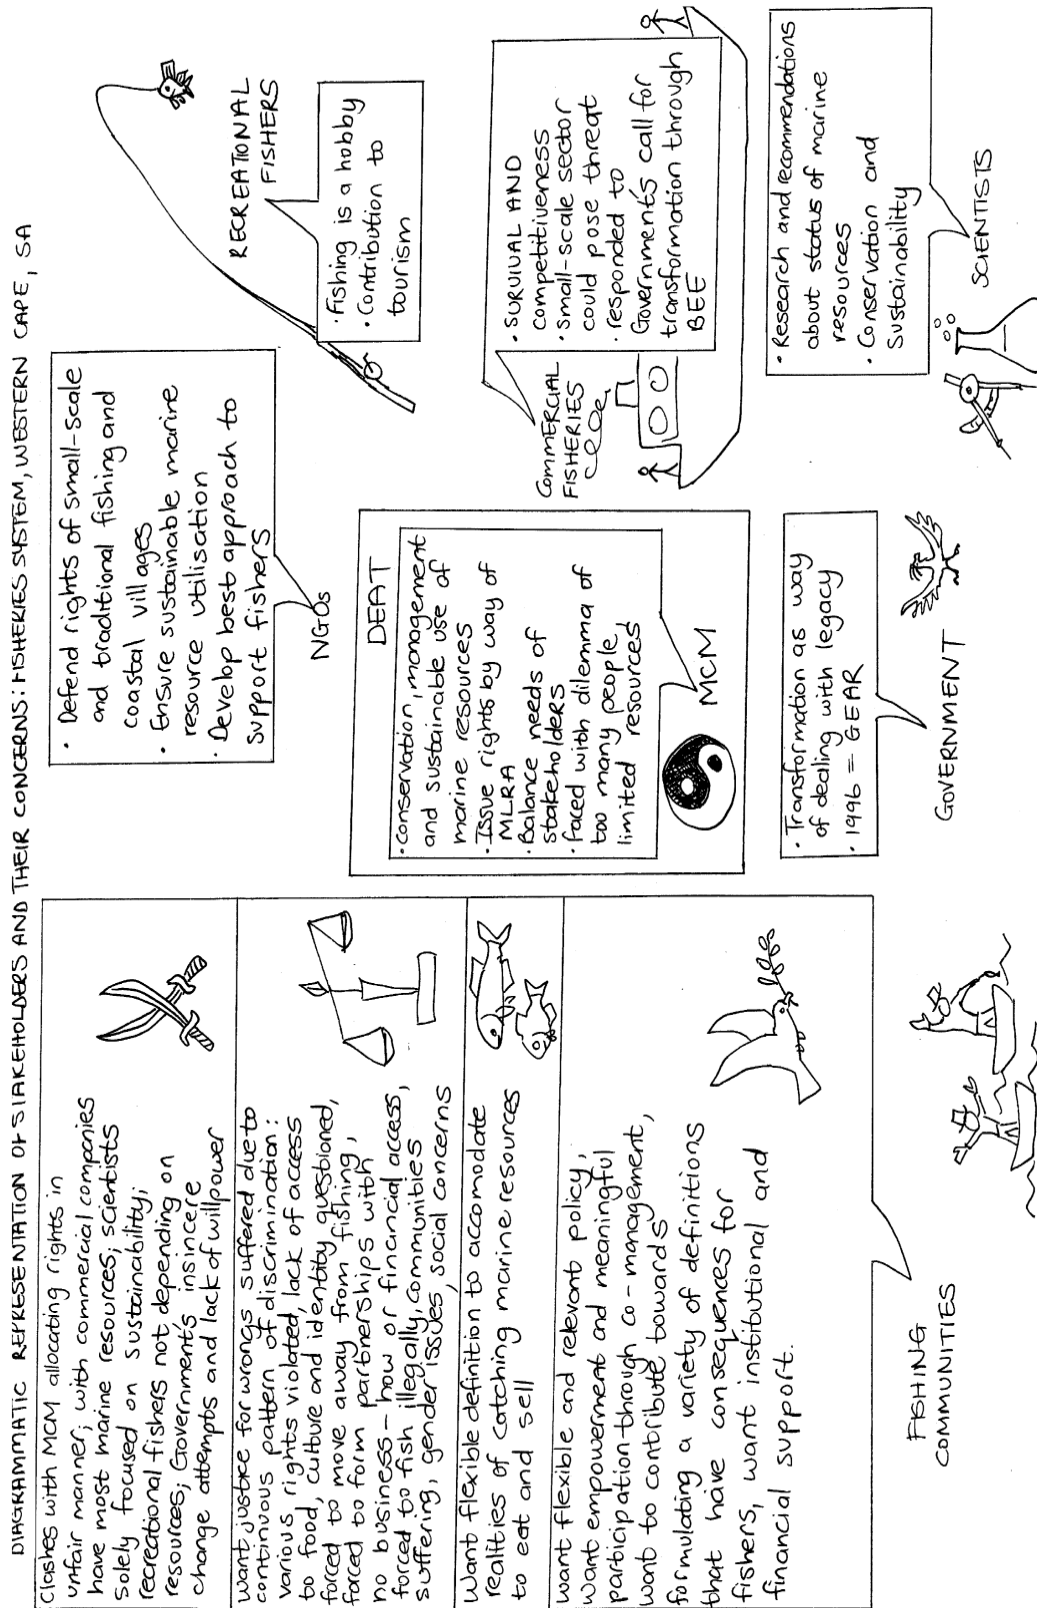 DIAGRAMMATIC REPRESENTATION OF STAKEHOLDERS AND THEIR CONCERNS: FISHERIES SYSTEM, WESTERN CAPE, SA
Clashes with MCM allocating rights in
unfair manner; with commercial companies
have most marine resources; scientists
solely focused on sustainability;
recreational fishers not depending on
resources; Government's insincere
change attempts and lack of willpower
Want justice for wrongs suffered due to
continuous pattern of discrimination:
various rights violated, lack of access
to food, culture and identity questioned,
forced to move away from fishing,
forced to form partnerships with
no business - how or financial access,
forced to fish illegally, communities
suffering, gender issues, social concerns
Want flexible definition to accomodate
realities of catching marine resources
to eat and sell
Want flexible and relevant policy,
want empowerment and meaningful
participation through co-management,
want to contribute towards
formulating a variety of definitions
that have consequences for
fishers, want institutional and
financial support.
FISHING
COMMUNITIES
• Defend rights of small-scale
and traditional fishing and
coastal villages
• Ensure sustainable marine
resource utilisation
• Develop best approach to
support fishers
NGOs
RECREATIONAL
FISHERS
• Fishing is a hobby
• Contribution to
tourism
DEAT
• Conservation, management
and sustainable use of
marine resources
• Issue rights by way of
MLRA
• Balance needs of
stakeholders
• Faced with dilemma of
too many people,
limited resources
MCM
COMMERCIAL
FISHERIES
• SURVIVAL AND
competitiveness
• small-scale sector
could pose threat
• responded to
Government's call for
transformation through
BEE
• Transformation as way
of dealing with legacy
• 1996 = GEAR
GOVERNMENT
• Research and recommendations
about status of marine
resources
• Conservation and
Sustainability
SCIENTISTS